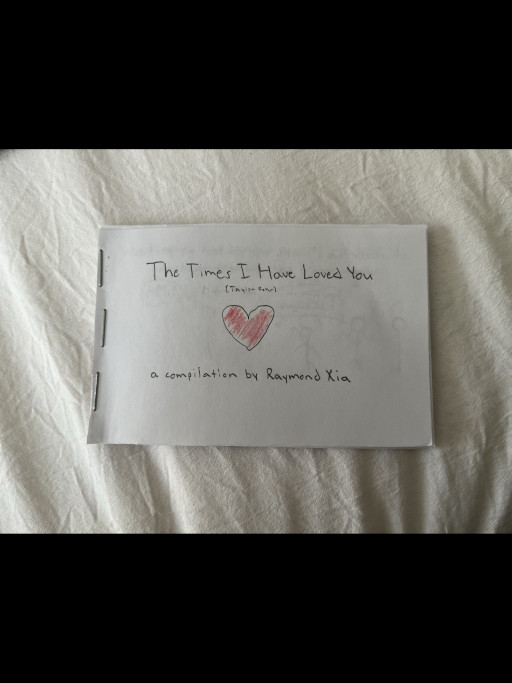 The Times I Have Loved You
a compilation by Raymond Xia